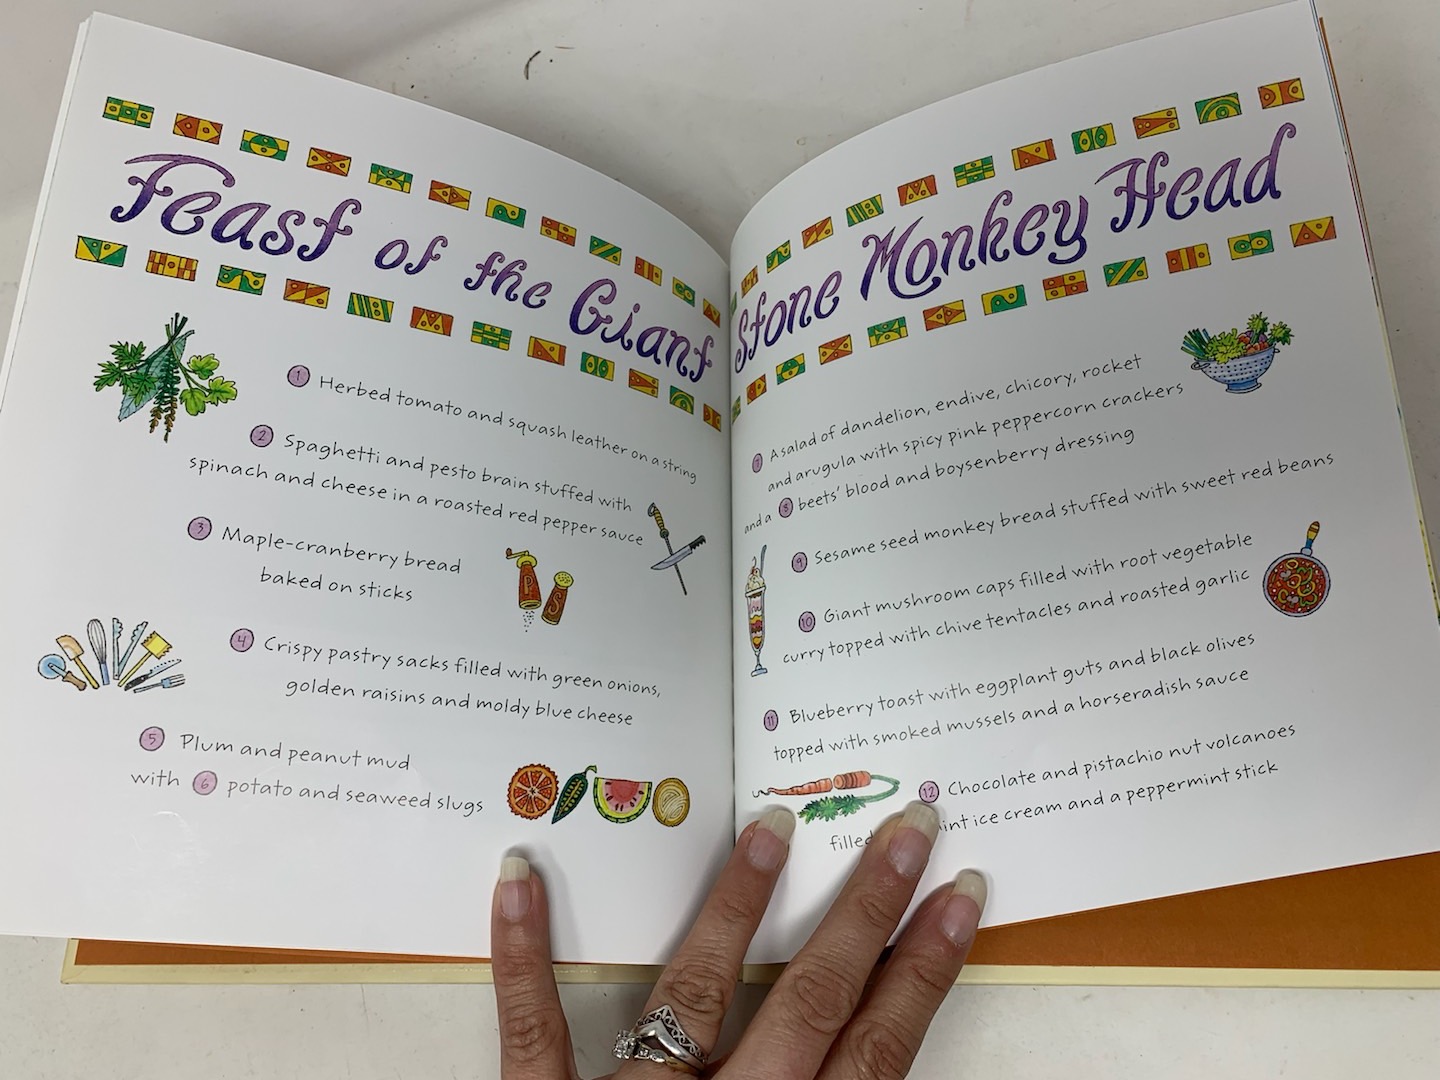 Feast of the Giant Stone Monkey Head
1 Herbed tomato and squash leather on a string
2 Spaghetti and pesto brain stuffed with
spinach and cheese in a roasted red pepper sauce
3 Maple-cranberry bread
baked on sticks
P S
4 Crispy pastry sacks filled with green onions,
golden raisins and moldy blue cheese
5 Plum and peanut mud
with 6 potato and seaweed slugs
7 A salad of dandelion, endive, chicory, rocket
and arugula with spicy pink peppercorn crackers
and a 8 beets' blood and boysenberry dressing
9 Sesame seed monkey bread stuffed with sweet red beans
10 Giant mushroom caps filled with root vegetable
curry topped with chive tentacles and roasted garlic
11 Blueberry toast with eggplant guts and black olives
topped with smoked mussels and a horseradish sauce
12 Chocolate and pistachio nut volcanoes
filled ice cream and a peppermint stick